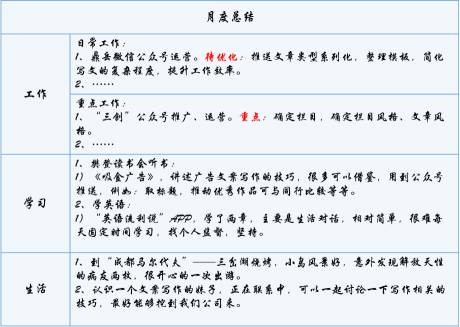 月度总结
工作
日常工作：
1、鼎岳微信公众号运营。待优化：推送文章类型系列化，整理模板，简化
写文的复杂程度，提升工作效率。
2、……
重点工作：
1、“三创”公众号推广、运营。重点：确定栏目，确定栏目风格、文章风
格。
2、……
学习
1、樊登读书会听书：
1）《吸金广告》，讲述广告文案写作的技巧，很多可以借鉴，用到公众号
推送，例如：取标题，推动优秀作品可与同行比较等等。
2、学英语：
1）“英语流利说”APP，学了两章，主要是生活对话，相对简单，很难每
天固定时间学习，找个人监督，坚持。
生活
1、到“成都马尔代夫”——三岔湖烧烤，小岛风景好，意外发现解放天性
的病友两枚，很开心的一次出游。
2、认识一个文案写作的妹子，正在联系中，可以一起讨论一下写作相关的
技巧，最好能够挖到我们公司来。